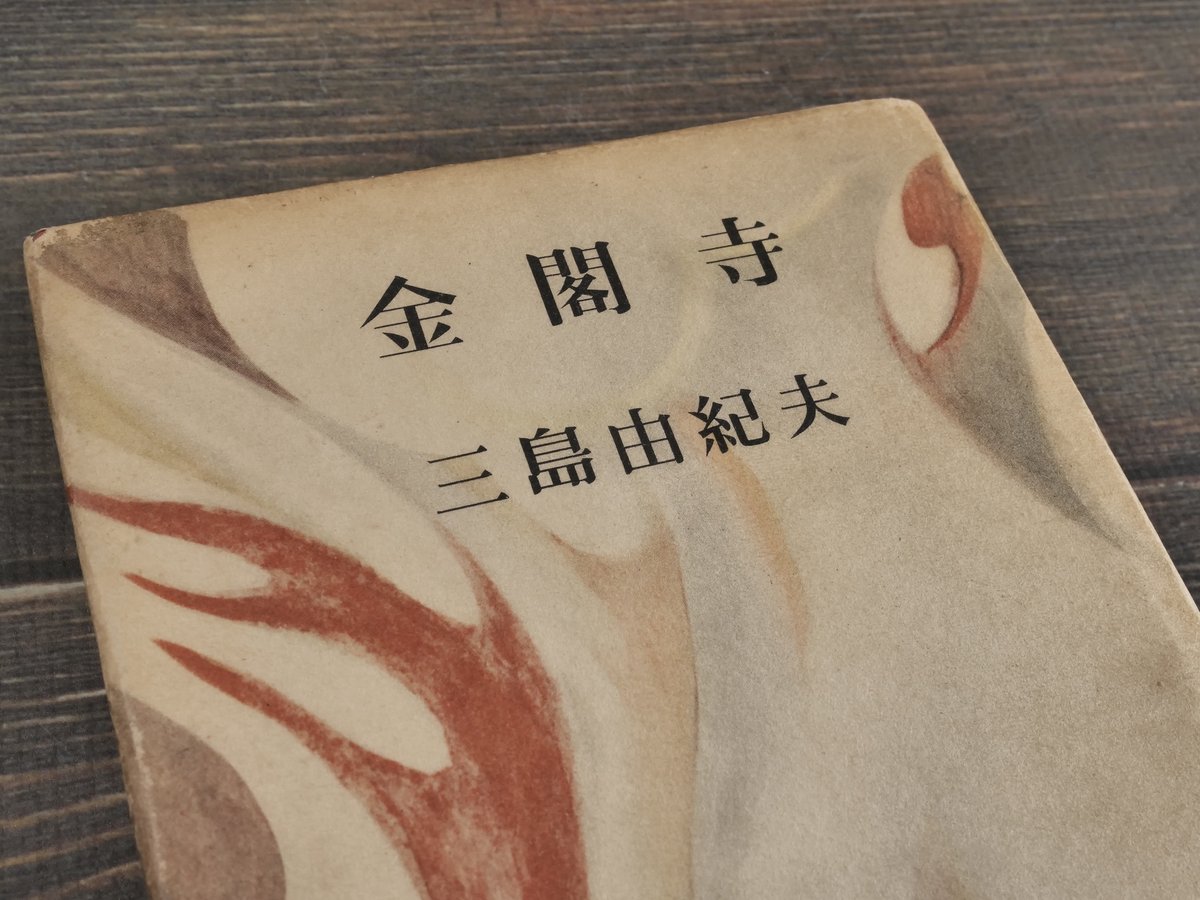 金閣寺
三島由紀夫